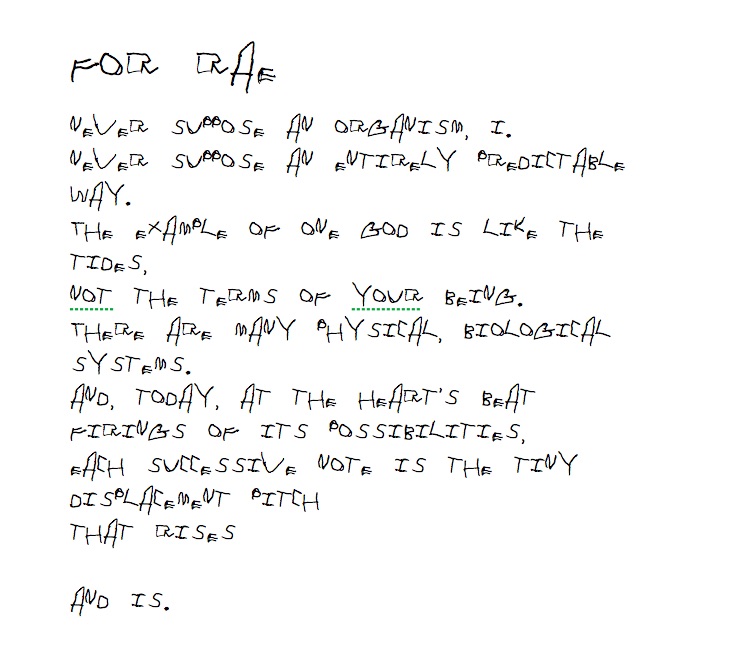 FOR RAE
NEVER SUPPOSE AN ORGANISM, I.
NEVER SUPPOSE AN ENTIRELY PREDICTABLE
WAY.
THE EXAMPLE OF ONE GOD IS LIKE THE
TIDES,
NOT THE TERMS OF YOUR BEING.
THERE ARE MANY PHYSICAL, BIOLOGICAL
SYSTEMS.
AND, TODAY, AT THE HEART'S BEAT
FIRINGS OF ITS POSSIBILITIES,
EACH SUCCESSIVE NOTE IS THE TINY
DISPLACEMENT PITCH
THAT RISES
AND IS.